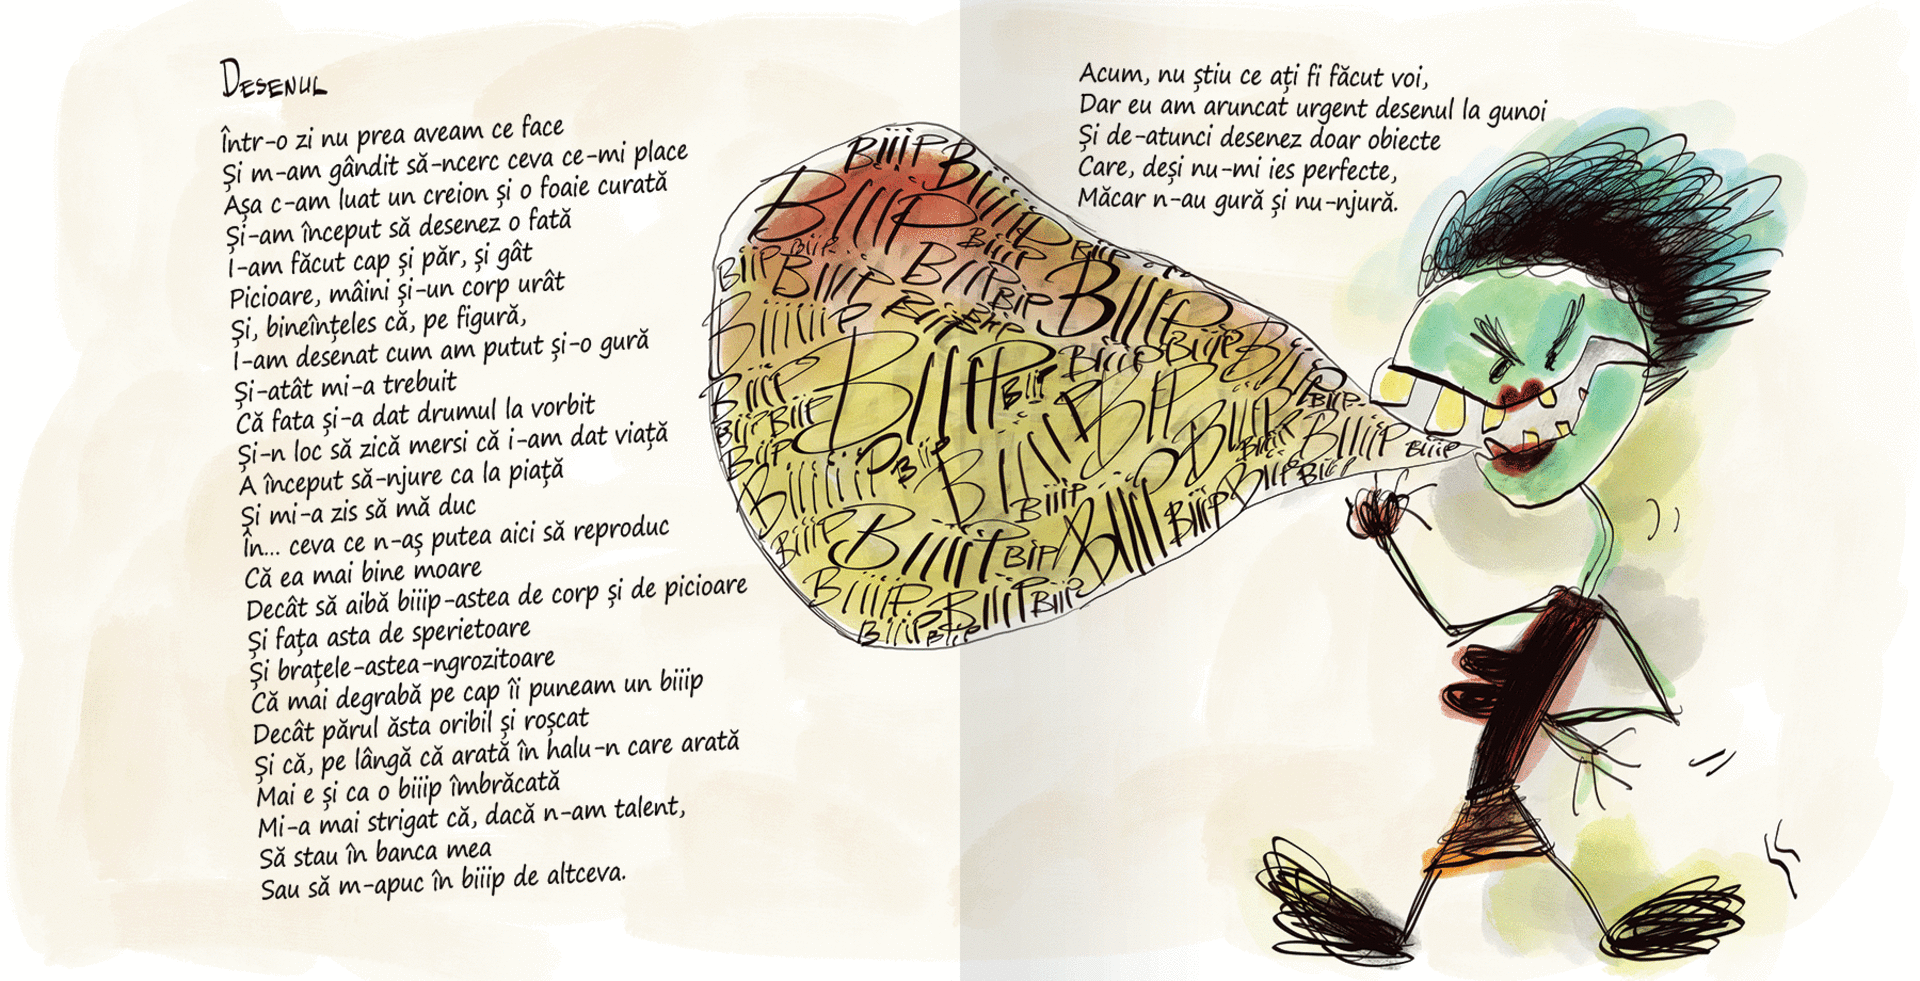 DESENUL
Într-o zi nu prea aveam ce face
Și m-am gândit să-ncerc ceva ce-mi place
Așa c-am luat un creion și o foaie curată
Și-am început să desenez o fată
I-am făcut cap și păr, și gât
Picioare, mâini și-un corp urât
Și, bineînțeles că, pe figură,
I-am desenat cum am putut și-o gură
Și-atât mi-a trebuit
Că fata și-a dat drumul la vorbit
Și-n loc să zică mersi că i-am dat viață
A început să-njure ca la piață
Și mi-a zis să mă duc
În... ceva ce n-aș putea aici să reproduc
Că ea mai bine moare
Decât să aibă biiip-astea de corp și de picioare
Și fața asta de sperietoare
Și brațele-astea-ngrozitoare
Că mai degrabă pe cap îi puneam un biiip
Decât părul ăsta oribil și roșcat
Și că, pe lângă că arată în halu-n care arată
Mai e și ca o biiip îmbrăcată
Mi-a mai strigat că, dacă n-am talent,
Să stau în banca mea
Sau să m-apuc în biiip de altceva.
BiiiP
BIIIP
BiiiP
BIIP
BIIIP
BIP
BIIIP
BIIIP
BIIIP
BIIP
BIIIP
BIIIP
BIP
BIIIP
BIIIP
BIIIP
Acum, nu știu ce ați fi făcut voi,
Dar eu am aruncat urgent desenul la gunoi
Și de-atunci desenez doar obiecte
Care, deși nu-mi ies perfecte,
Măcar n-au gură și nu-njură.